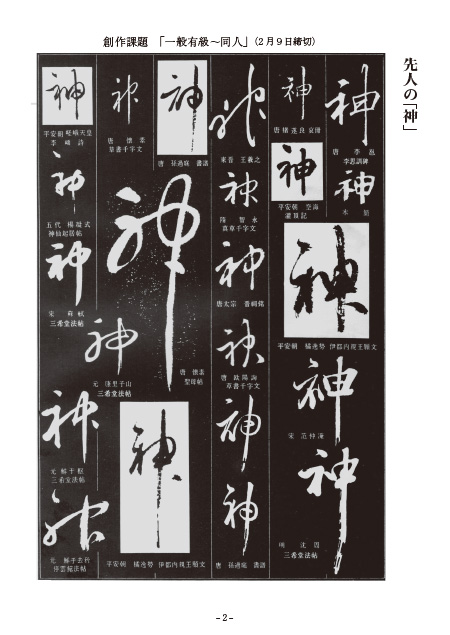 創作課題 「一般有級～同人」(2月9日締切)
先人の「神」
神
唐 李邕
李思訓碑
神
木簡
神
唐 褚遂良 哀冊
神
平安朝 空海
灌頂記
神
平安朝 橘逸勢 伊都内親王願文
神
宋 范仲淹
神
明 沈周
三希堂法帖
神
東晋 王羲之
神
隋 智永
真草千字文
神
唐太宗 晋祠銘
神
唐 欧陽詢
草書千字文
神
神
唐 孫過庭 書譜
神
唐 孫過庭 書譜
神
唐 懐素
草書千字文
神
唐 懐素
聖母帖
神
元 康里子山
三希堂法帖
神
平安朝 橘逸勢 伊都内親王願文
神
平安朝 嵯峨天皇
李嶠詩
神
五代 楊凝式
神仙起居帖
神
宋 蘇軾
三希堂法帖
神
元 鮮于枢
三希堂法帖
神
元 鮮于去矜
停雲館法帖
-2-